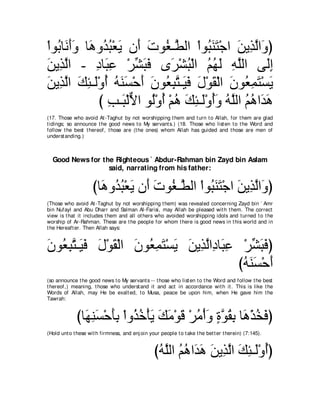 وَالَّذِينَ اجْتَنَبُوا الطَّـغُوتَ أَن يَعْبُدُوهَا وَأَنَابُوا
إِلَى اللَّهِ لَهُمُ الْبُشْرَى فَبَشِّرْ عِبَادِ - الَّذِينَ
يَسْتَمِعُونَ الْقَوْلَ فَيَتَّـبِعُونَ أَحْسَنَهُ أُوْلَـئِكَ الَّذِينَ
هَدَاهُمُ اللَّهُ وَأُوْلَـئِكَ هُمْ أُوْلُو الاٌّلْبَـبِ )
(17. Those who avoid At-Taghut by not worshipping them and turn to Allah, for them are glad
tidings; so announce the good news to My servants.) (18. Those who listen to the Word and
follow the best thereof, those are (the ones) whom Allah has guided and those are men of
understanding.)
Good News for the Righteous ` Abdur-Rahman bin Zayd bin Aslam
said, narrating from his father:
(وَالَّذِينَ اجْتَنَبُوا الطَّـغُوتَ أَن يَعْبُدُوهَا)
(Those who avoid At-Taghut by not worshipping them) was revealed concerning Zayd bin ` Amr
bin Nufayl and Abu Dharr and Salman Al-Farisi, may Allah be pleased with them. The correct
view is that it includes them and all others who avoided worshipping idols and turned to the
worship of Ar-Rahman. These are the people for whom there is good news in this world and in
the Hereafter. Then Allah says:
(فَبَشِّرْ عِبَادِالَّذِينَ يَسْتَمِعُونَ الْقَوْلَ فَيَتَّـبِعُونَ
أَحْسَنَهُ)
(so announce the good news to My servants -- those who listen to the Word and follow the best
thereof,) meaning, those who understand it and act in accordance with it. This is like the
Words of Allah, may He be exalted, to Musa, peace be upon him, when He gave him the
Tawrah:
(فَخُذْهَا بِقُوَّةٍ وَأْمُرْ قَوْمَكَ يَأْخُذُوا بِأَحْسَنِهَا)
(Hold unto these with firmness, and enjoin your people to take the better therein) (7:145).
(أُوْلَـئِكَ الَّذِينَ هَدَاهُمُ اللَّهُ)